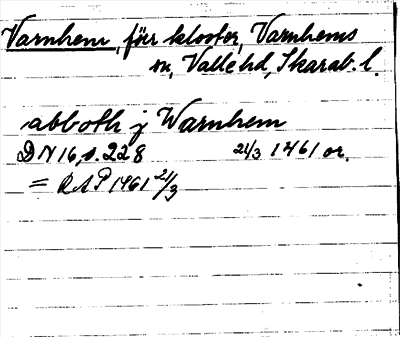 Varnhem, förr kloster, Varnhems
sn, Valle hd, Skarab. l.
abboth j Warnhem
DN 16, s. 228 21/3 1461 or.
= RAP 1461 21/3